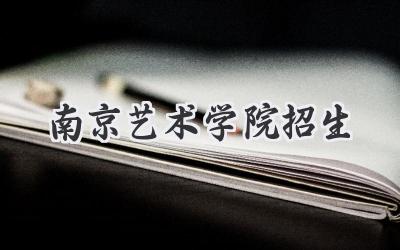 南京艺术学院招生